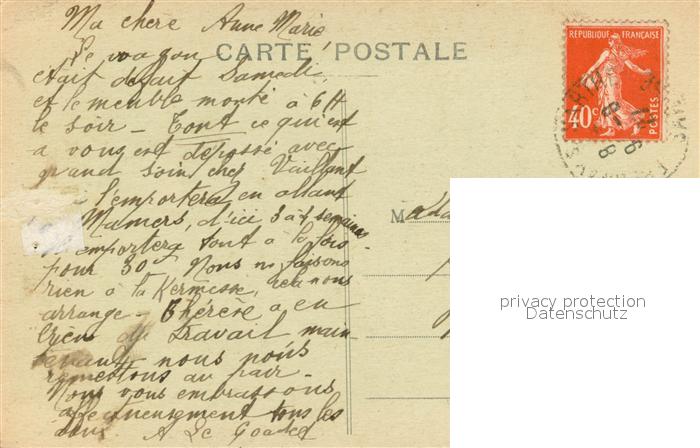 Ma chere Anne Marie
CARTE POSTALE
Le wagon
était défait Samedi
et le meuble monté à 6 H
le soir - Tout ce qui est
a vous est déposé avec
grand soin chez Vaillant
l'emportera en allant
Mamers, d'ici 3 à 4 semaines
emportera tout à la fois
pour 30 Nous ne faisons
rien à la Kermesse, cela nous
arrange - Thérèse a eu
bien du travail main-
tenant nous nous
remettons au pair -
Nous vous embrassons
affectueusement tous les
deux. A Le
REPUBLIQUE FRANÇAISE
40c
POSTES
M
privacy protection
Datenschutz